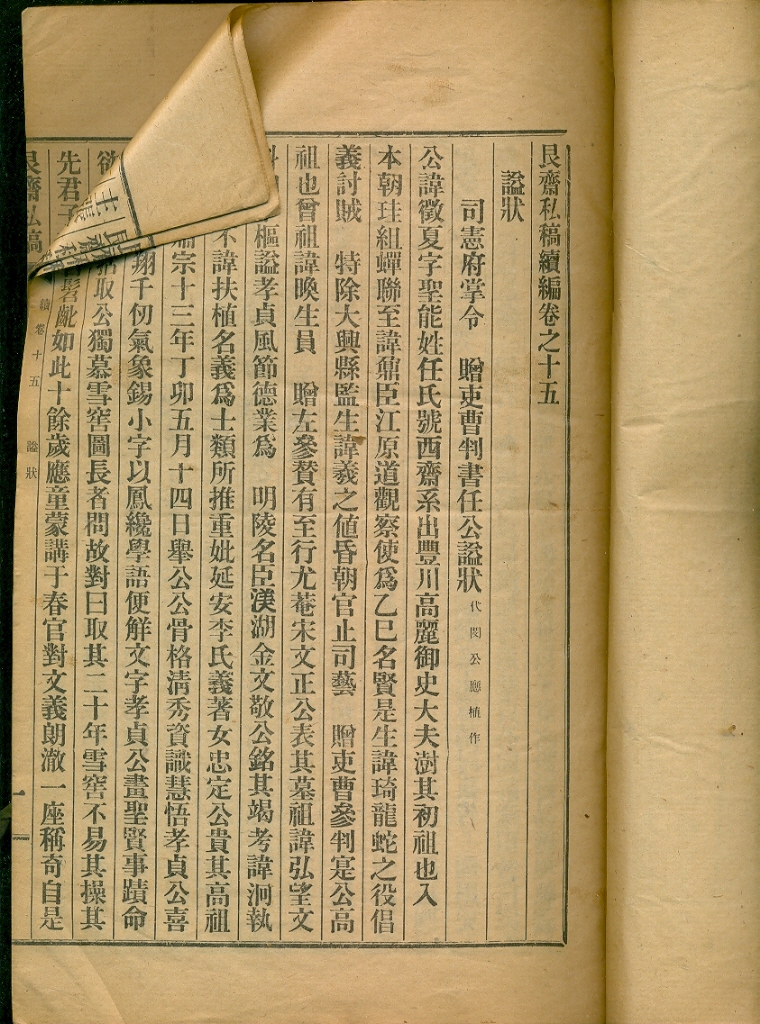 艮齋私稿續編卷之十五
諡狀
司憲府掌令 贈吏曹判書任公諡狀 代閔公應植作
公諱徵夏字聖能姓任氏號西齋系出豐川高麗御史大夫澍其初祖也入
本朝珪組蟬聯至諱鼐臣江原道觀察使爲乙巳名賢是生諱琦龍蛇之役倡
義討賊 特除大興縣監生諱羲之値昏朝官止司藝 贈吏曹參判寔公高
祖也曾祖諱喚生員 贈左參贊有至行尤菴宋文正公表其墓祖諱弘望文
樞諡孝貞風節德業爲 明陵名臣渼湖金文敬公銘其竭考諱泂執
不諱扶植名義爲士類所推重妣延安李氏義著女忠定公貴其高祖
肅宗十三年丁卯五月十四日擧公公骨格淸秀資識慧悟孝貞公喜
翔千仞氣象錫小字以鳳纔學語便解文字孝貞公畫聖賢事蹟命
取公獨慕雪窖圖長者問故對曰取其二十年雪窖不易其操其
髫齔如此十餘歲應童蒙講于春官對文義朗澈一座稱奇自是
欲
先君子
艮齋私稿
續卷十五
諡狀
一